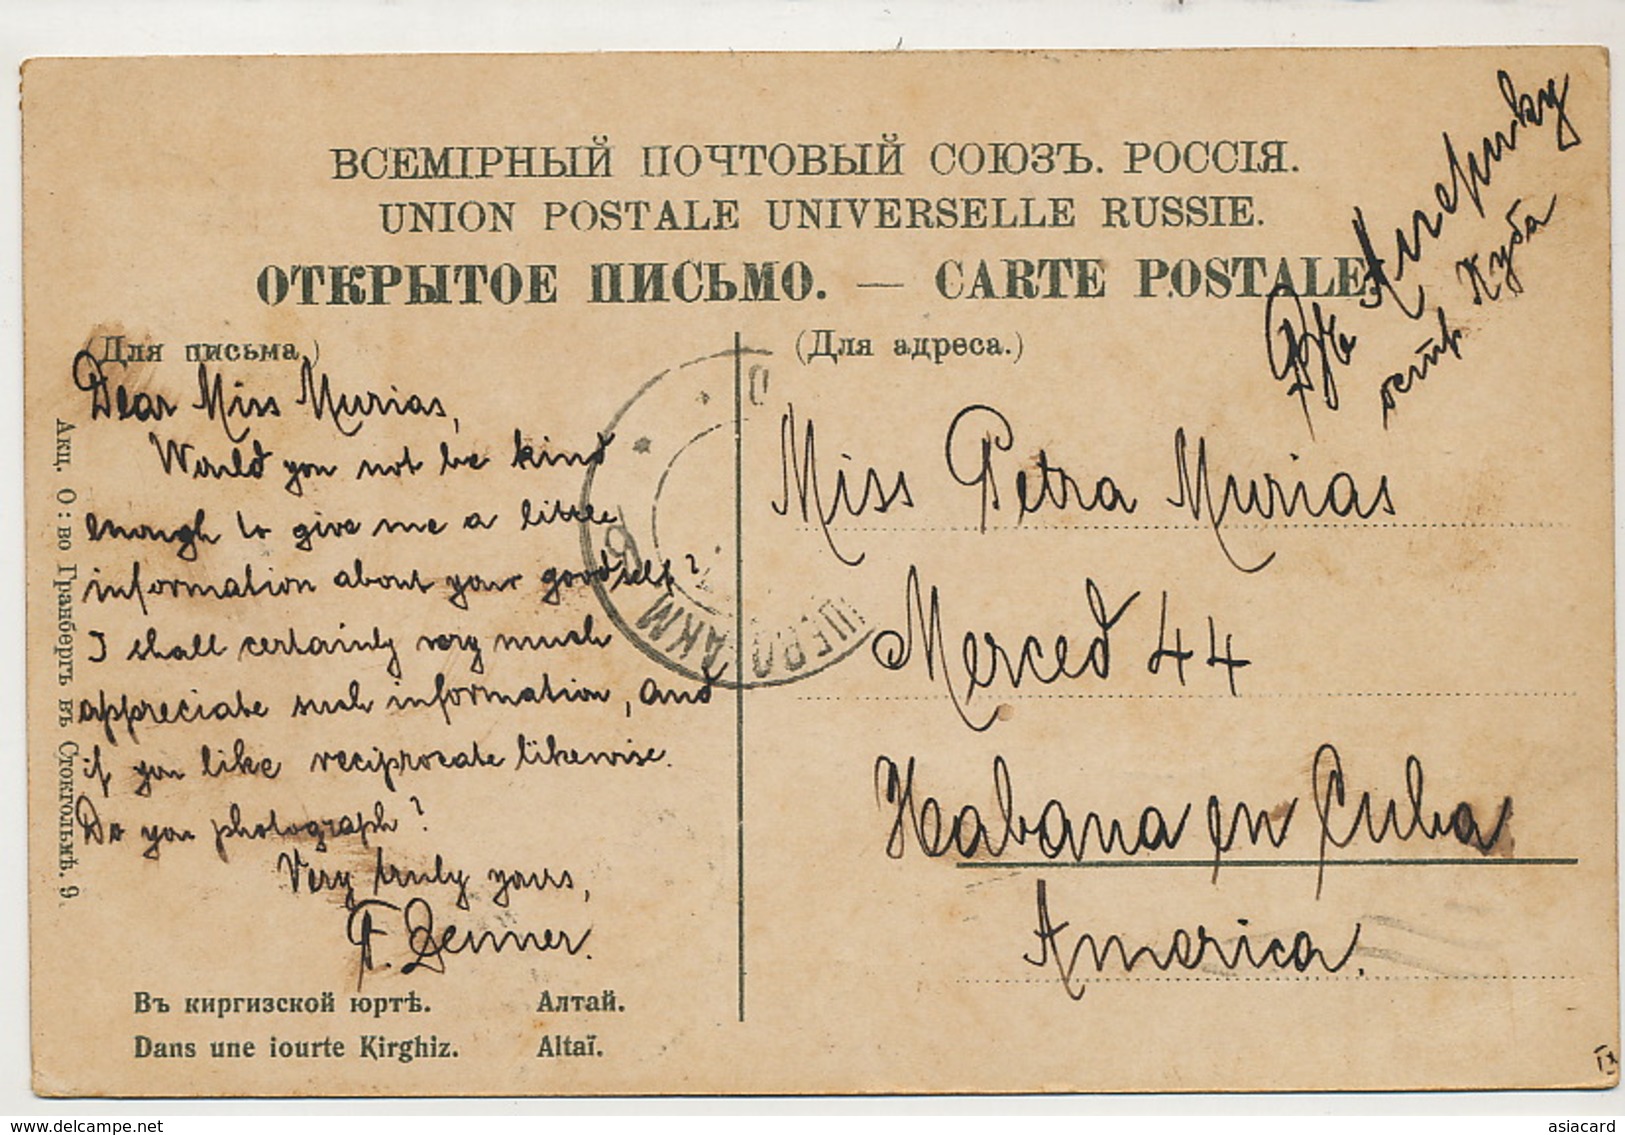 ВСЕМІРНЫЙ ПОЧТОВЫЙ СОЮЗЪ. РОССІЯ.
UNION POSTALE UNIVERSELLE RUSSIE.
ОТКРЫТОЕ ПИСЬМО. — CARTE POSTALE.
(Для письма.)
(Для адреса.)
Въ Америку
остр. Куба
Dear Miss Murias,
Would you not be kind
enough to give me a little
information about your goodself?
I shall certainly very much
appreciate such information, and
if you like reciprocate likewise.
Do you photograph?
Very truly yours,
Miss Petra Murias
Merced 44
Habana en Cuba
America.
Акц. О: во Гранбергъ въ Стокгольмѣ. 9
Въ киргизской юртѣ. Алтай.
Dans une iourte Kirghiz. Altaï.
IX
delcampe.net
asiacard